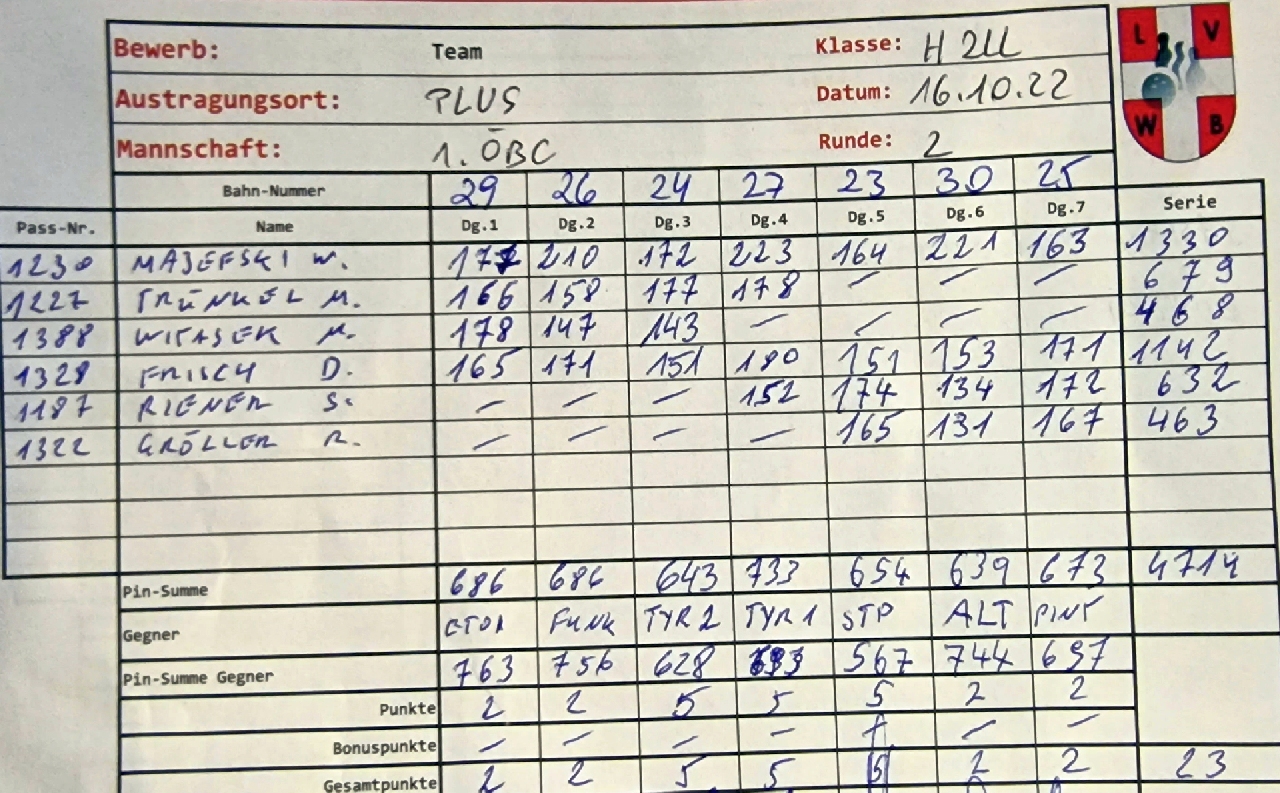 Bewerb: Team Klasse: H 2LL
Austragungsort: PLUS Datum: 16.10.22
Mannschaft: 1. ÖBC Runde: 2
L V W B
Bahn-Nummer 29 26 24 27 23 30 25
Pass-Nr. Name Dg.1 Dg.2 Dg.3 Dg.4 Dg.5 Dg.6 Dg.7 Serie
1230 MAJEFSKI W. 177 210 172 223 164 221 163 1330
1227 TRÜNKEL M. 166 158 177 178 — — — 679
1388 WITASEK M. 178 147 143 — — — — 468
1328 FRISCH D. 165 171 151 180 151 153 171 1142
1187 RIENER S. — — — 152 174 134 172 632
1322 GRÖLLER R. — — — — 165 131 167 463
Pin-Summe 686 686 643 733 654 639 673 4714
Gegner FUNK TYR 2 TYR 1 STP ALT PINT
Pin-Summe Gegner 763 756 628 567 744 697
Punkte 2 2 5 5 5 2 2
Bonuspunkte — — — — — —
Gesamtpunkte 2 2 5 5 5 2 2 23